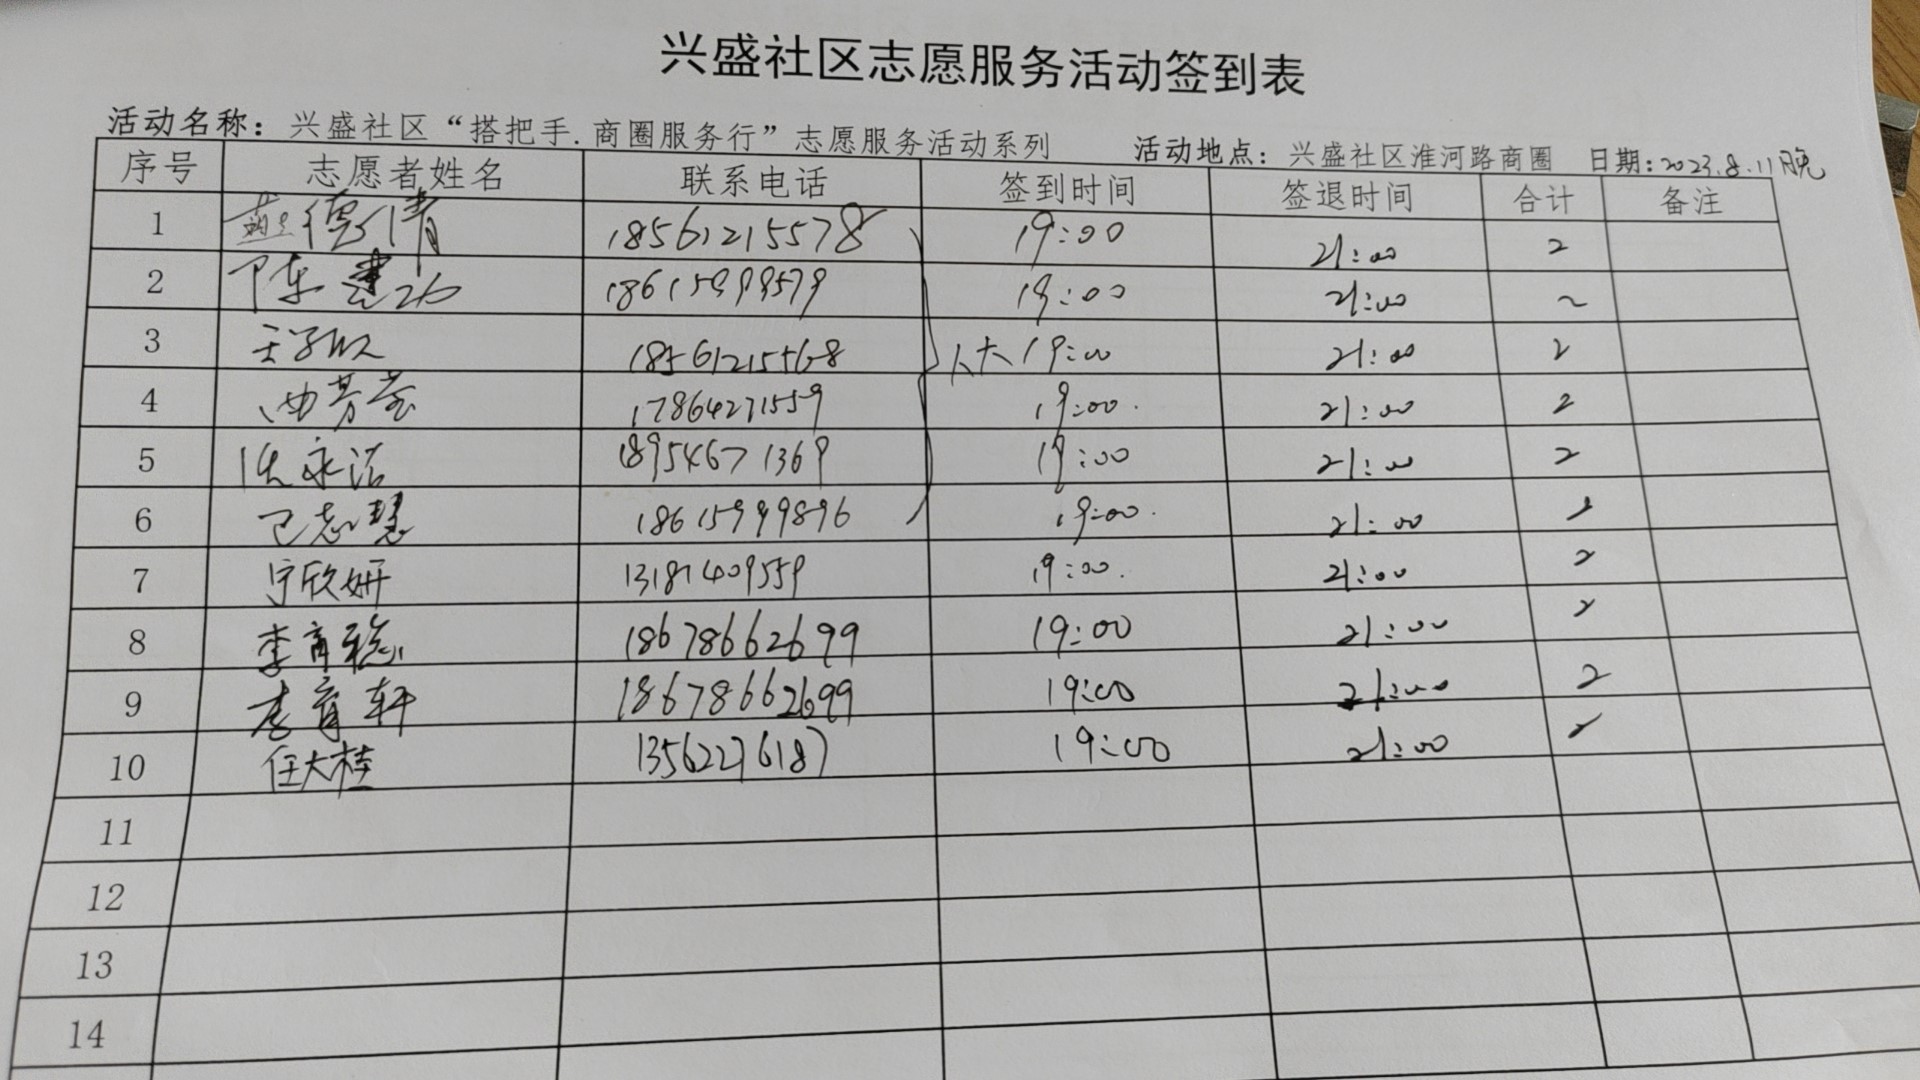 兴盛社区志愿服务活动签到表
活动名称：兴盛社区“搭把手.商圈服务行”志愿服务活动系列 活动地点：兴盛社区淮河路商圈 日期：2023.8.11日晚
序号 志愿者姓名 联系电话 签到时间 签退时间 合计 备注
1 德清 18561215578 19:00 21:00 2
2 陈 18615999579 19:00 21:00 2
3 18561215568 人大 19:00 21:00 2
4 曲芳 17864271559 19:00. 21:00 2
5 永洁 18954671369 19:00 21:00 2
6 志慧 18615999896 19:00. 21:00 2
7 宁欣妍 13181409559 19:00. 21:00 2
8 李育聪 18678662699 19:00 21:00 2
9 李育轩 18678662699 19:00 21:00 2
10 任大桂 13562276187 19:00 21:00 2
11
12
13
14